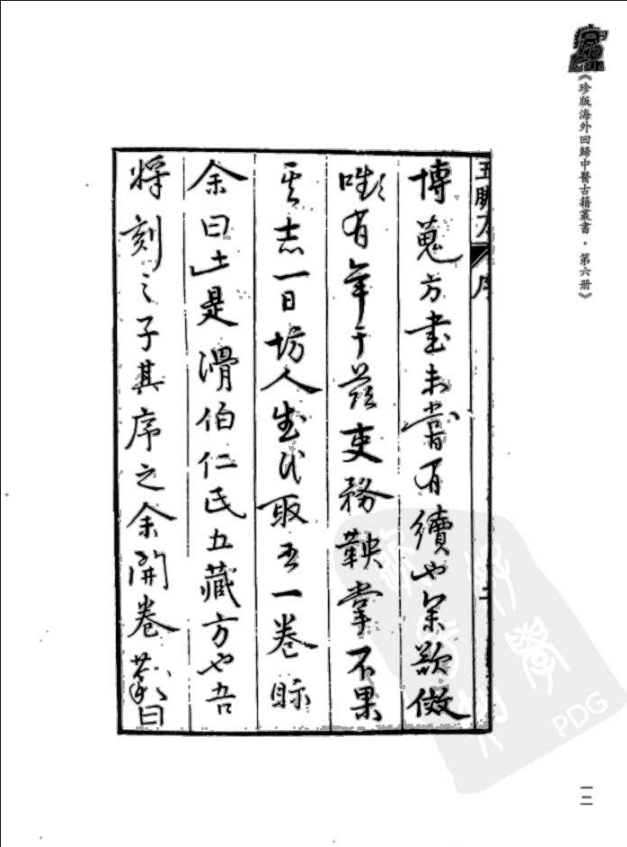 《珍版海外回歸中醫古籍叢書·第六册》
五臟方 序 二
博蒐方書未嘗有續也余欲倣
嚬有年于茲吏務鞅掌不果
其志一日坊人 氏 一卷眎
余曰此是滑伯仁氏五藏方也吾
將刻之子其序之余開卷 曰
一二
PDG